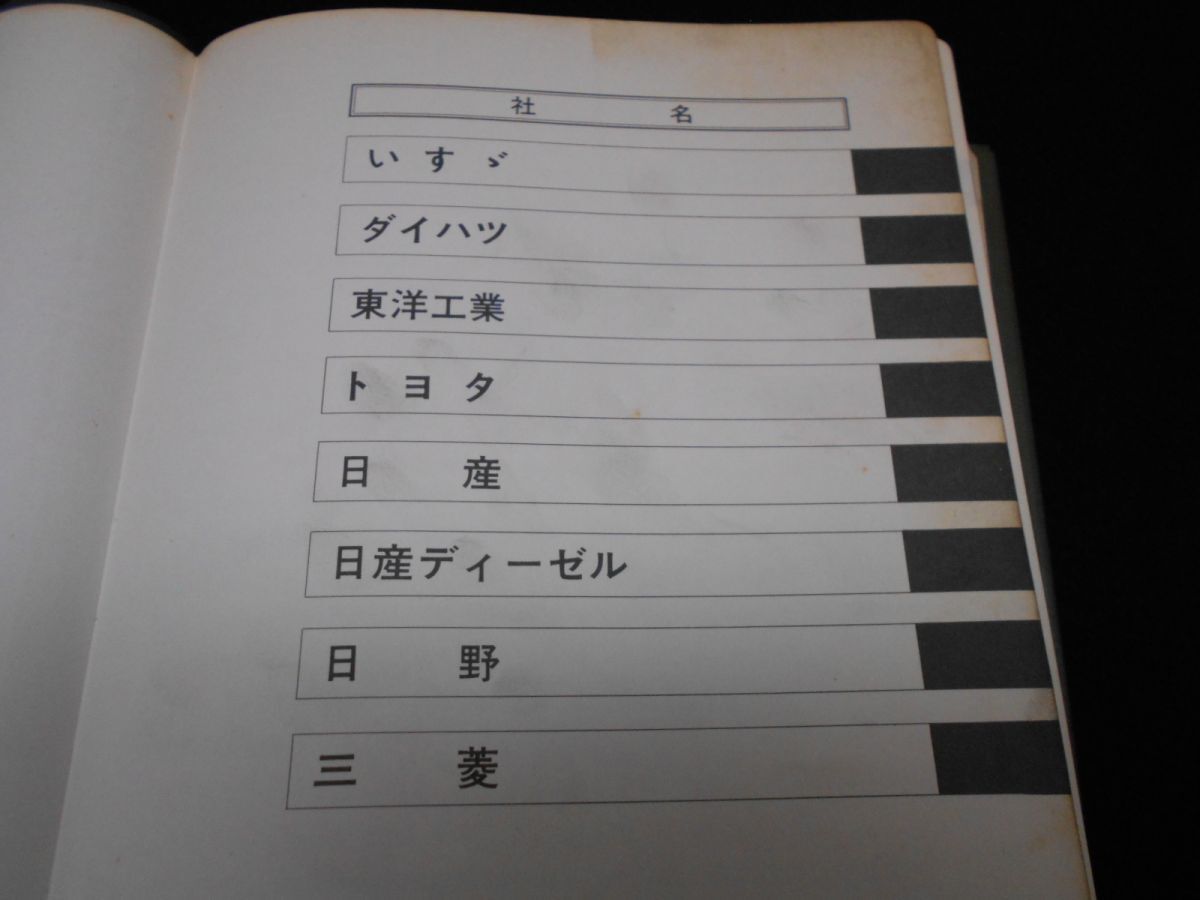 社名
いすゞ
ダイハツ
東洋工業
トヨタ
日産
日産ディーゼル
日野
三菱